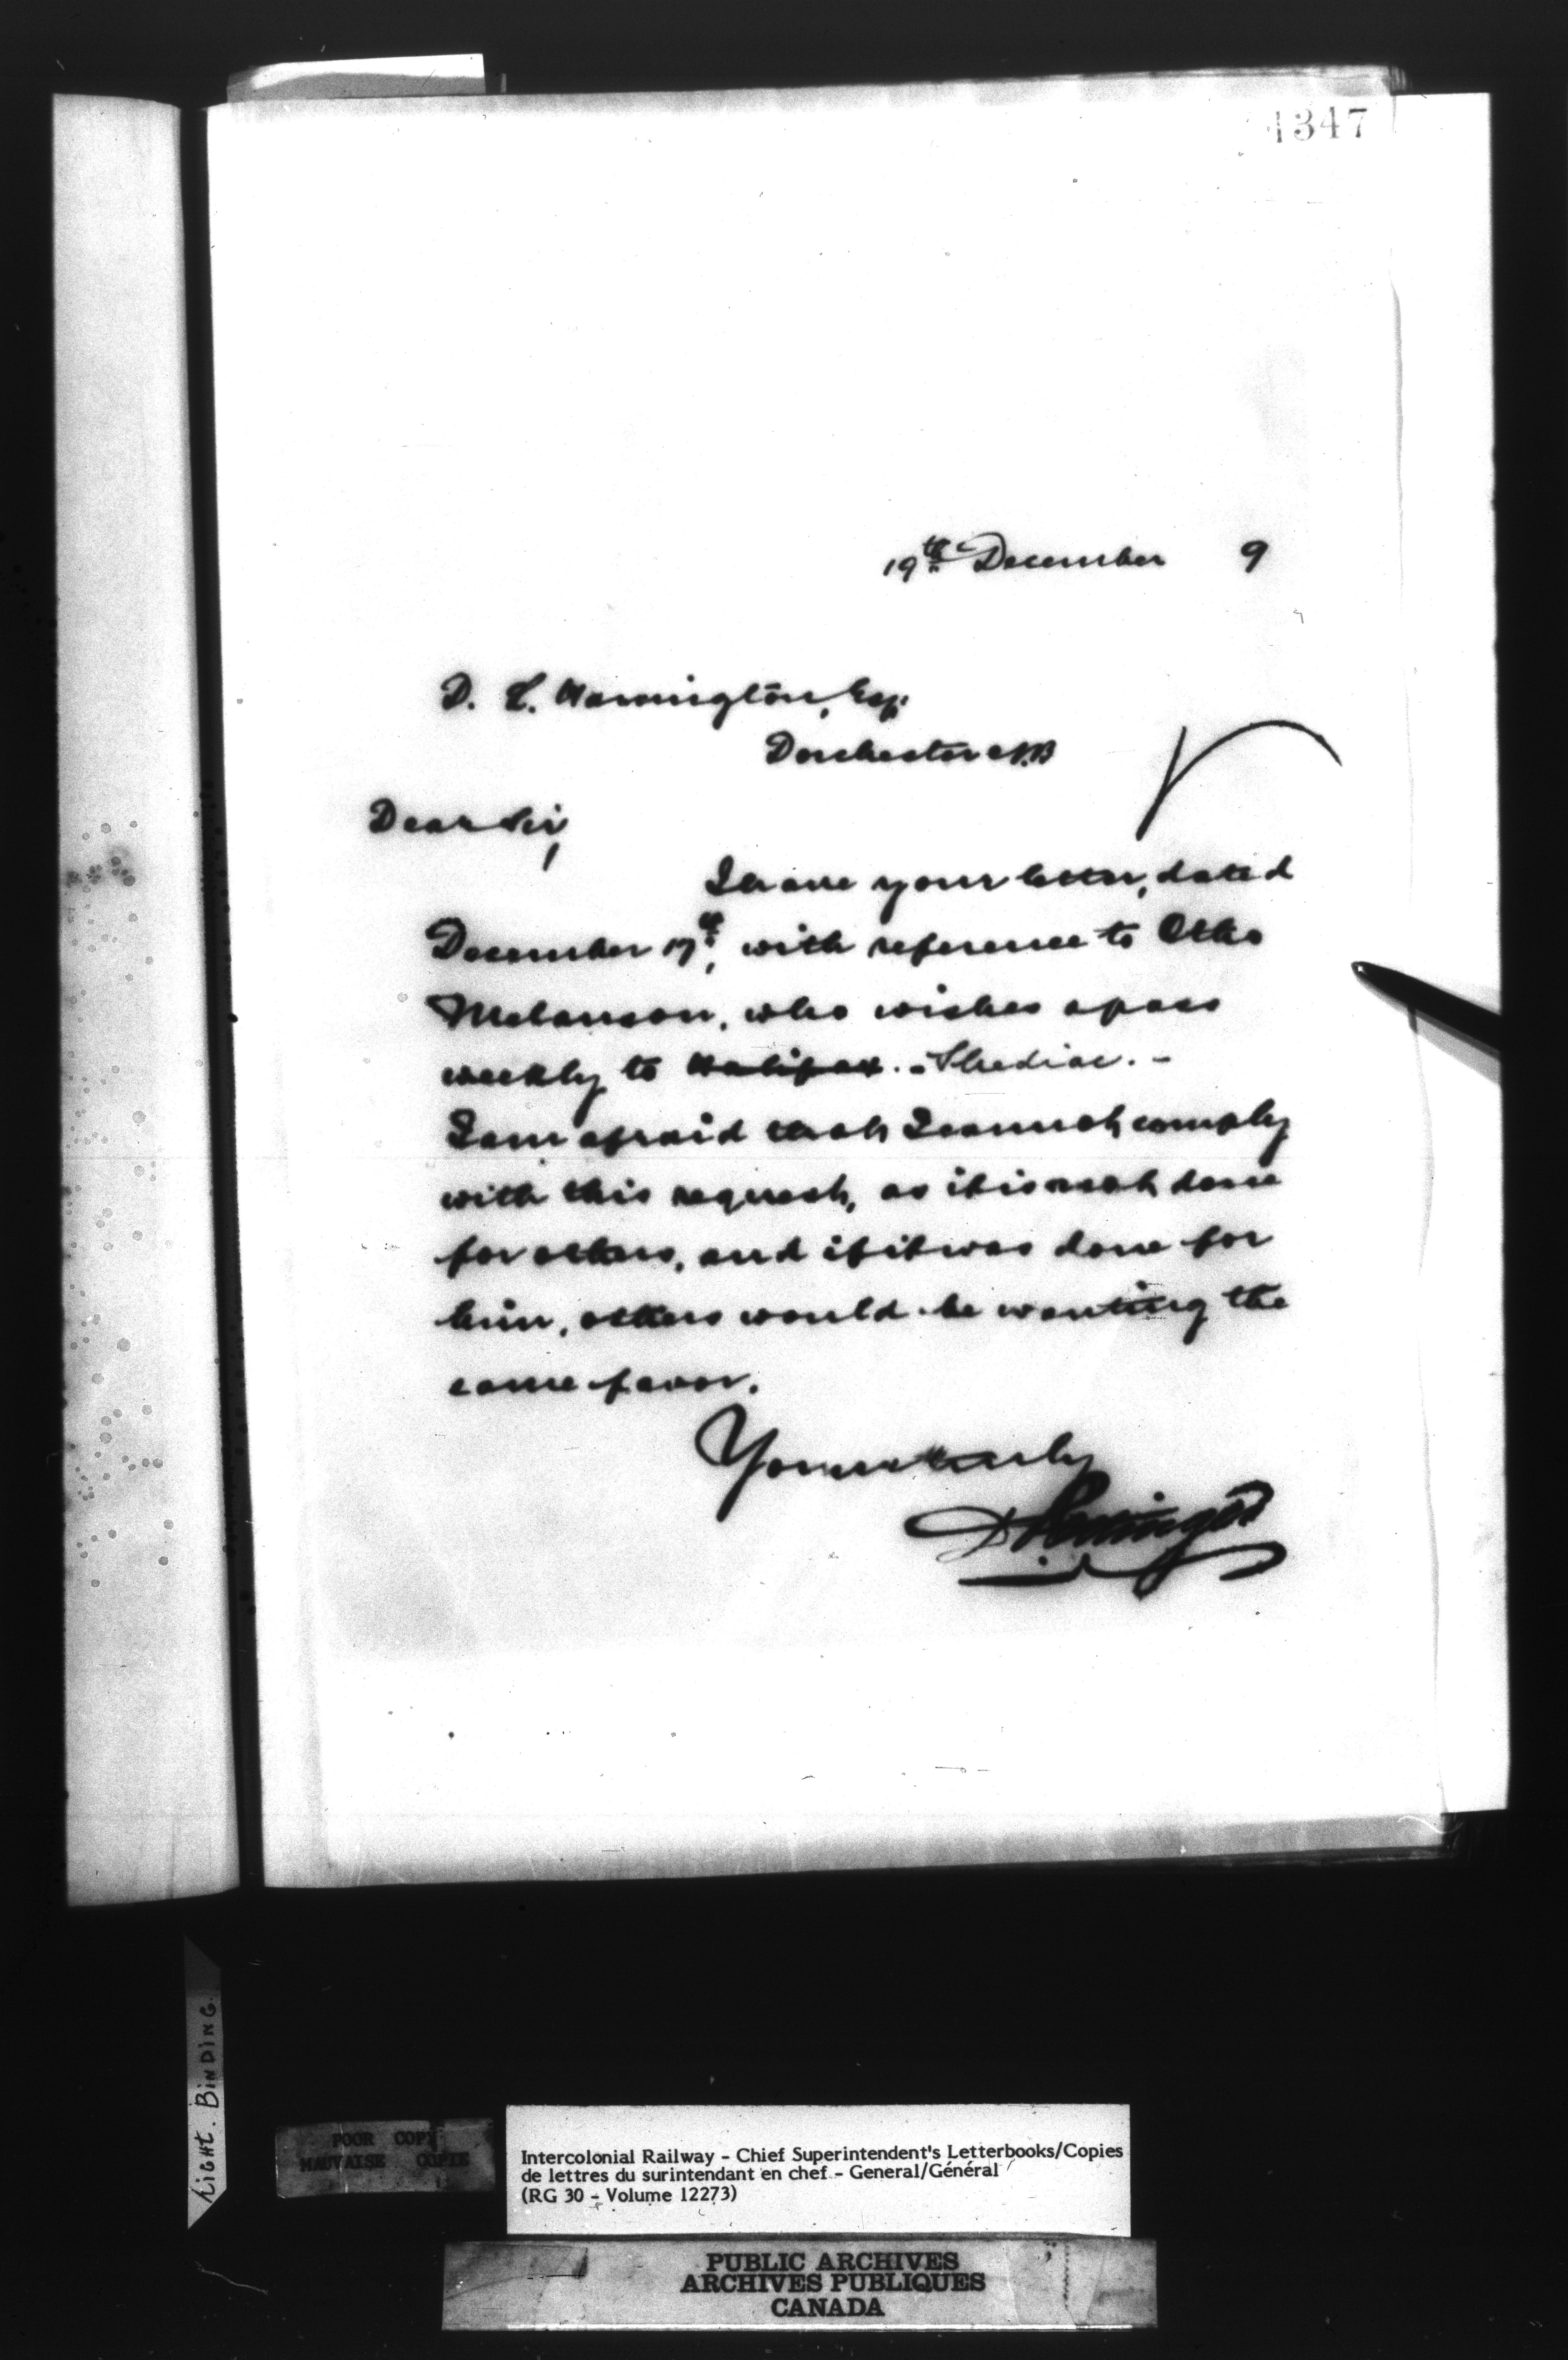 1347
19th December 9
D. L. Hanington, Esq.
Dorchester N.B
Dear Sir,
I have your letter, dated
December 17th, with reference to Otho
Melanson, who wishes a pass
weekly to Halifax. - Shediac. -
I am afraid that I cannot comply
with this request, as it is not done
for others, and if it was done for
him, others would be wanting the
same favor.
Yours truly
D Pottinger
LIGHT. BINDING.
POOR COPY
MAUVAISE COPIE
Intercolonial Railway - Chief Superintendent's Letterbooks/Copies
de lettres du surintendant en chef - General/Général
(RG 30 - Volume 12273)
PUBLIC ARCHIVES
ARCHIVES PUBLIQUES
CANADA